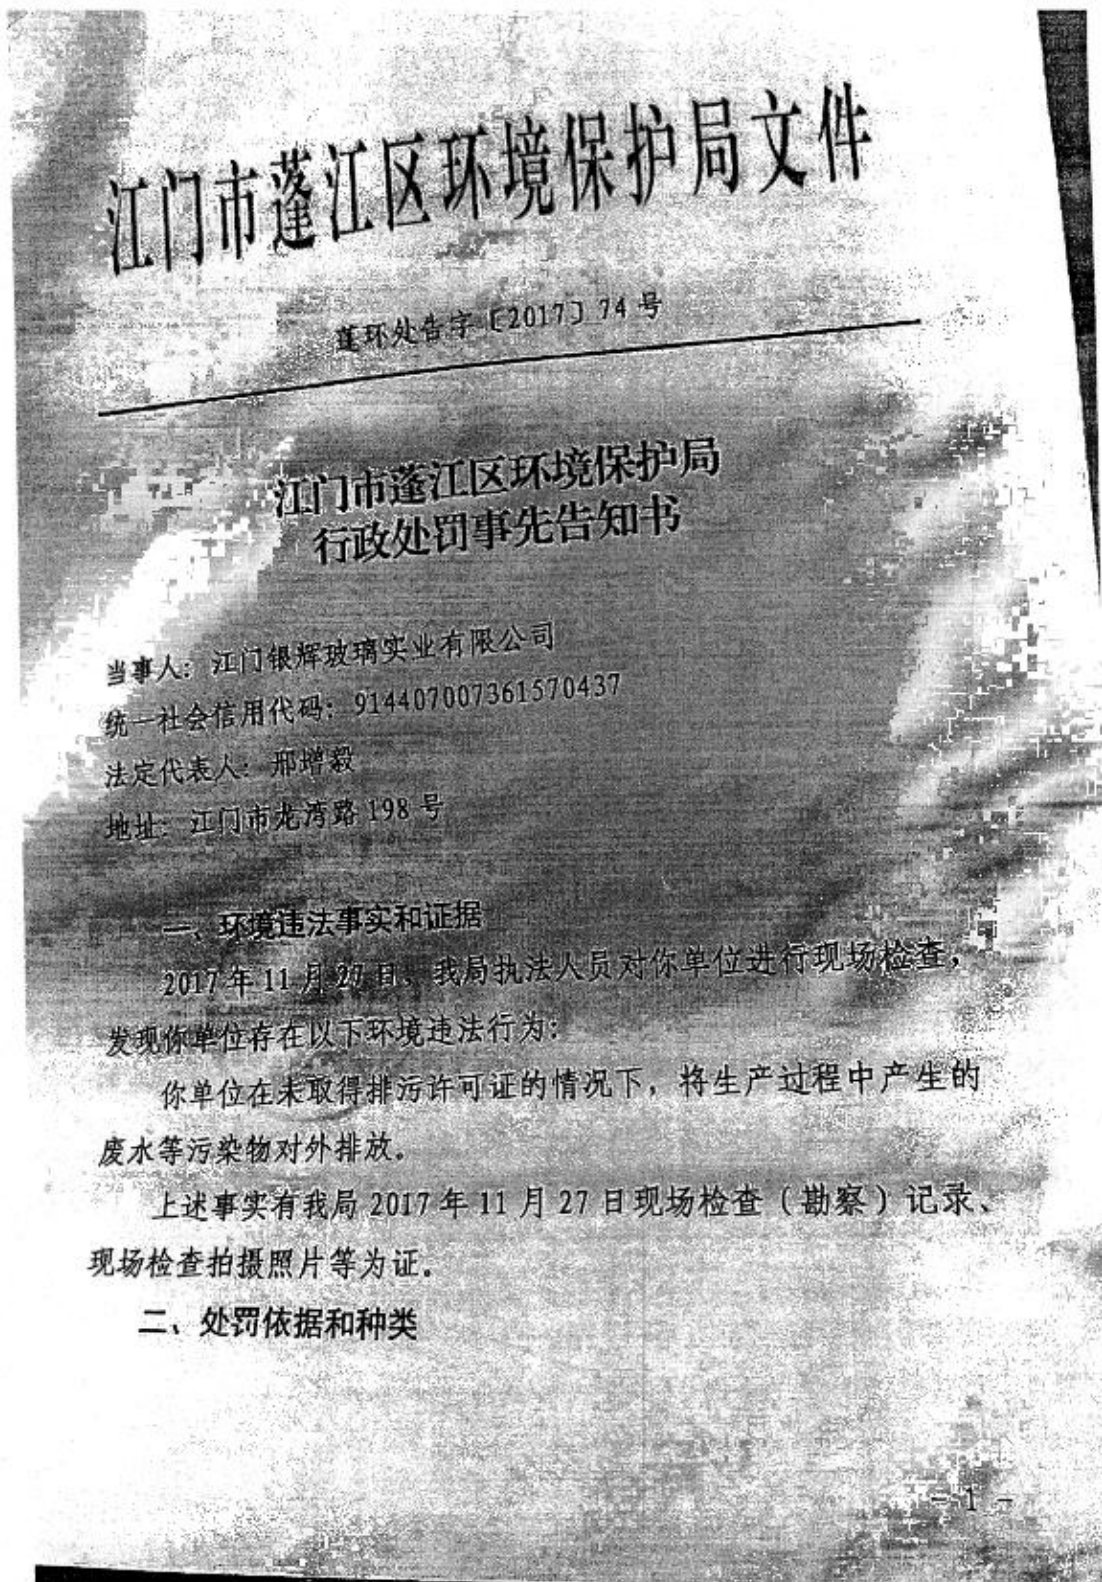 江门市蓬江区环境保护局文件
蓬环处告字〔2017〕74号
江门市蓬江区环境保护局
行政处罚事先告知书
当事人：江门银辉玻璃实业有限公司
统一社会信用代码：914407007361570437
法定代表人：邢增毅
地址：江门市龙湾路198号
一、环境违法事实和证据
2017年11月27日，我局执法人员对你单位进行现场检查，
发现你单位存在以下环境违法行为：
你单位在未取得排污许可证的情况下，将生产过程中产生的
废水等污染物对外排放。
上述事实有我局2017年11月27日现场检查（勘察）记录、
现场检查拍摄照片等为证。
二、处罚依据和种类
- 1 -